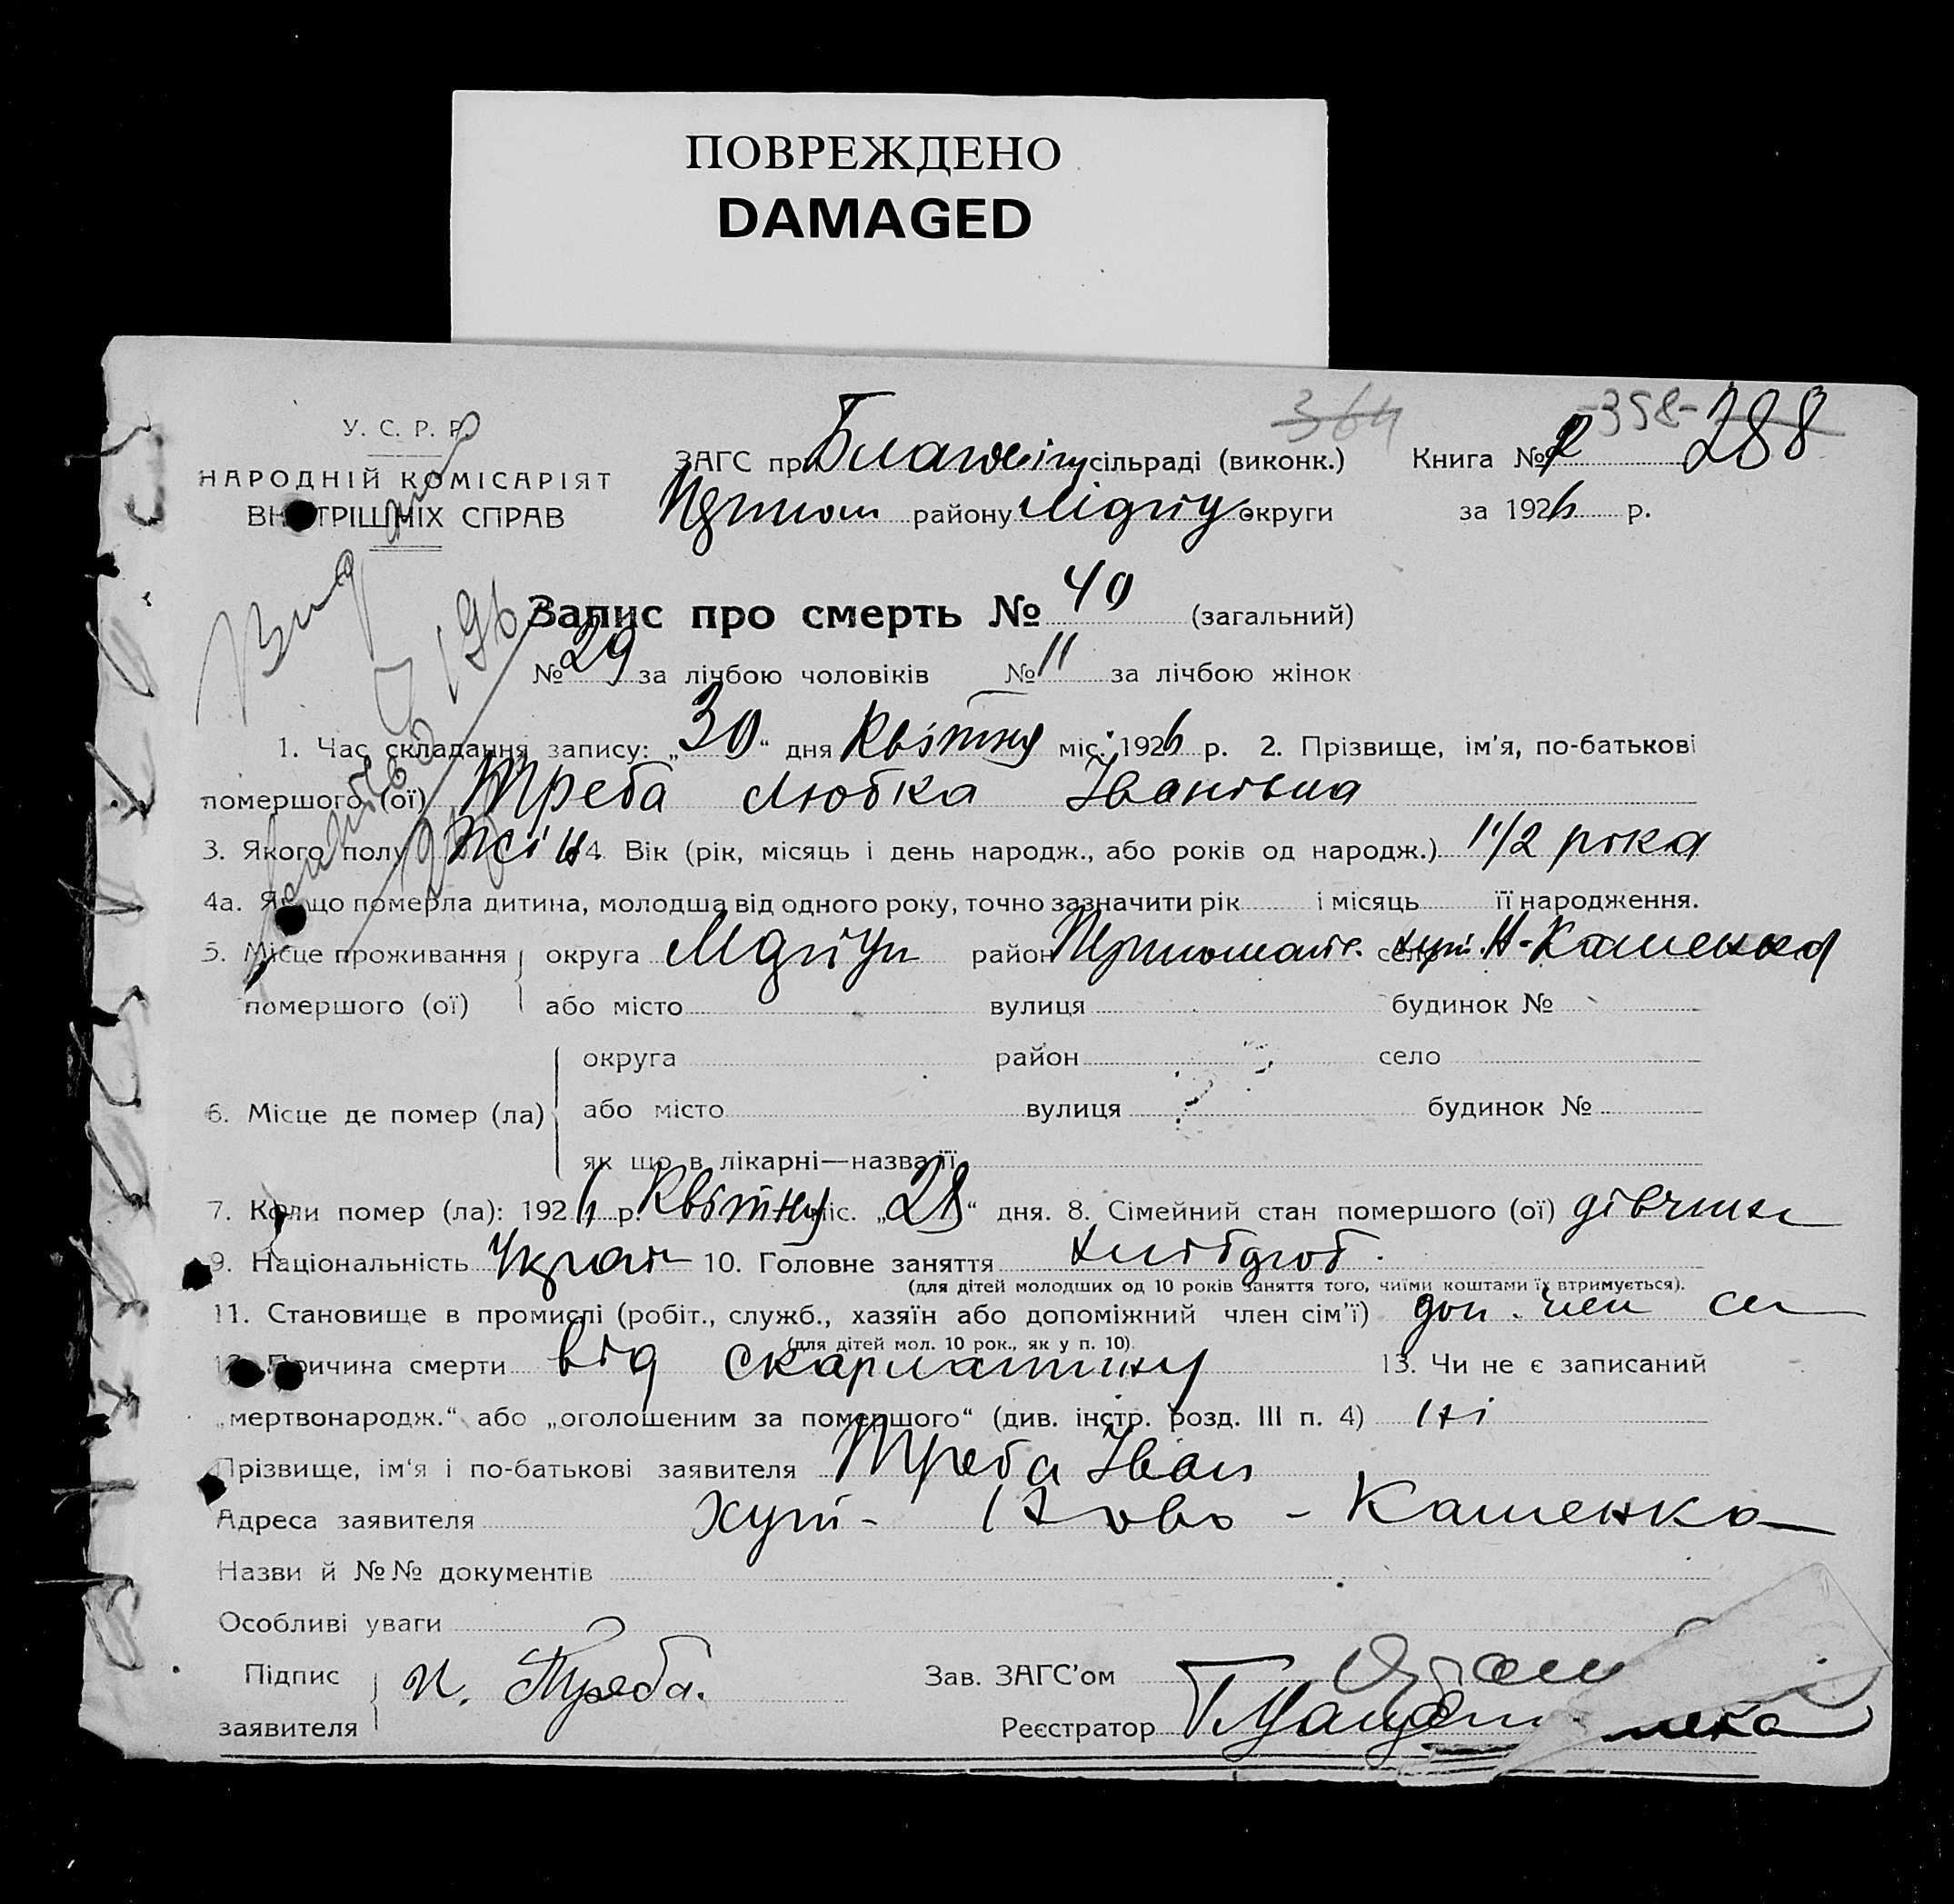 ПОВРЕЖДЕНО
DAMAGED
364 -358- 288
У. С. Р. Р.
НАРОДНІЙ КОМІСАРІЯТ
ВНУТРІШНІХ СПРАВ
ЗАГС при сільраді (виконк.) Книга № 2
району округи за 1926 р.
Запис про смерть № 40 (загальний)
№ 29 за лічбою чоловіків № 11 за лічбою жінок
1. Час складання запису: „30“ дня Квітня міс. 1926 р. 2. Прізвище, ім'я, по-батькові
помершого (ої) Треба Любка Іванівна
3. Якого полу жін 4. Вік (рік, місяць і день народж., або років од народж.) 1 1/2 рока
4а. Якщо померла дитина, молодша від одного року, точно зазначити рік і місяць її народження.
5. Місце проживання округа район село хут. Н-Каменка
помершого (ої) або місто вулиця будинок №
округа район село
6. Місце де помер (ла) або місто вулиця будинок №
як що в лікарні—назва її
7. Коли помер (ла): 1926 р. Квітня міс. „28“ дня. 8. Сімейний стан помершого (ої) дівчина
9. Національність Україн 10. Головне заняття хлібороб.
(для дітей молодших од 10 років заняття того, чиїми коштами їх втримується).
11. Становище в промислі (робіт., служб., хазяїн або допоміжний член сім'ї) доп. член см
(для дітей мол. 10 рок., як у п. 10).
12. Причина смерти від скарлатини 13. Чи не є записаний
„мертвонародж.“ або „оголошеним за помершого“ (див. інстр. розд. III п. 4) ні
Прізвище, ім'я і по-батькові заявителя Треба Іван
Адреса заявителя хут- Ново - Каменка
Назви й №№ документів
Особливі уваги
Підпис заявителя И. Треба.
Зав. ЗАГС'ом
Реєстратор